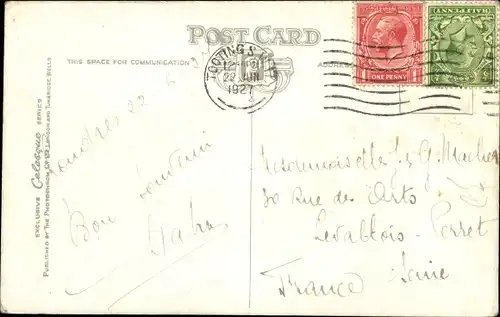 POST CARD
THIS SPACE FOR COMMUNICATION
ADDRESS
TOOTING S.W.17
22 JUN
1927
ONE PENNY
HALFPENNY
EXCLUSIVE Celebque SERIES
PUBLISHED BY THE PHOTOCHROM CO. LTD. LONDON AND TUNBRIDGE WELLS
Londres 22
Bon
Mademoiselle G.
30 Rue des Arts
Levallois-Perret
France Seine